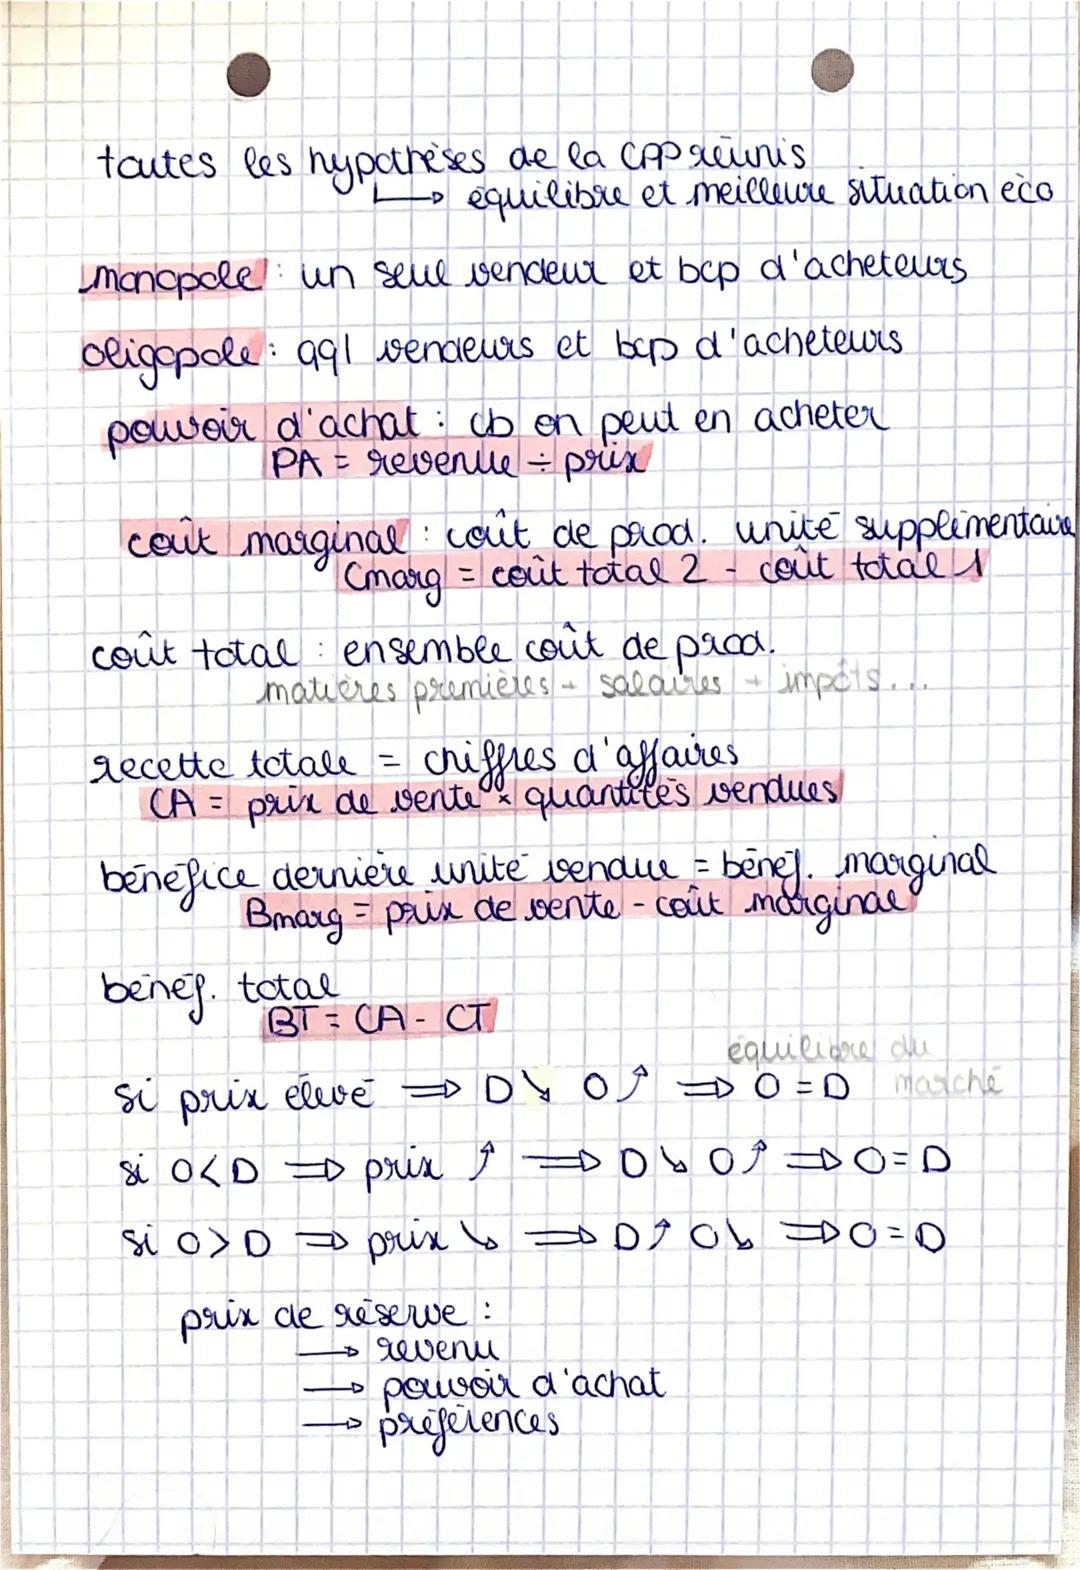 toutes les hypothèses de la CPP réunis
→ équilibre et meilleure situation éco
monopole : un seul vendeur et bcp d'acheteurs
oligopole : qql vendeurs et bcp d'acheteurs
pouvoir d'achat : cb on peut en acheter
PA = revenue ÷ prix
coût marginal : coût de prod. unité supplémentaire
Cmarg = coût total 2 - coût total 1
coût total : ensemble coût de prod.
matières premières + salaires + impôts...
recette totale = chiffres d'affaires
CA = prix de vente x quantités vendues
bénéfice dernière unité vendue = bénéf. marginal
Bmarg = prix de vente - coût marginal
bénéf. total
BT = CA - CT
équilibre du
si prix élevé ⇒ D↘ O↗ ⇒ O = D marché
si O<D ⇒ prix ↗ ⇒ D↘ O↗ ⇒ O = D
si O>D ⇒ prix ↘ ⇒ D↗ O↘ ⇒ O = D
prix de réserve :
→ revenu
→ pouvoir d'achat
→ préférences